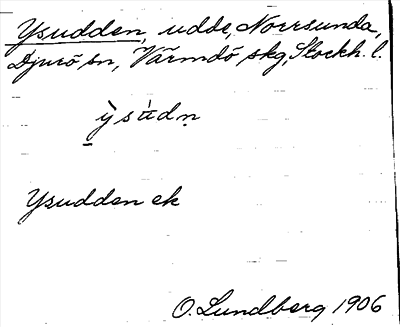 Ysudden, udde, Norrsunda,
Djurö sn, Värmdö skg, Stockh. l.
Ysudden ek
O. Lundberg 1906